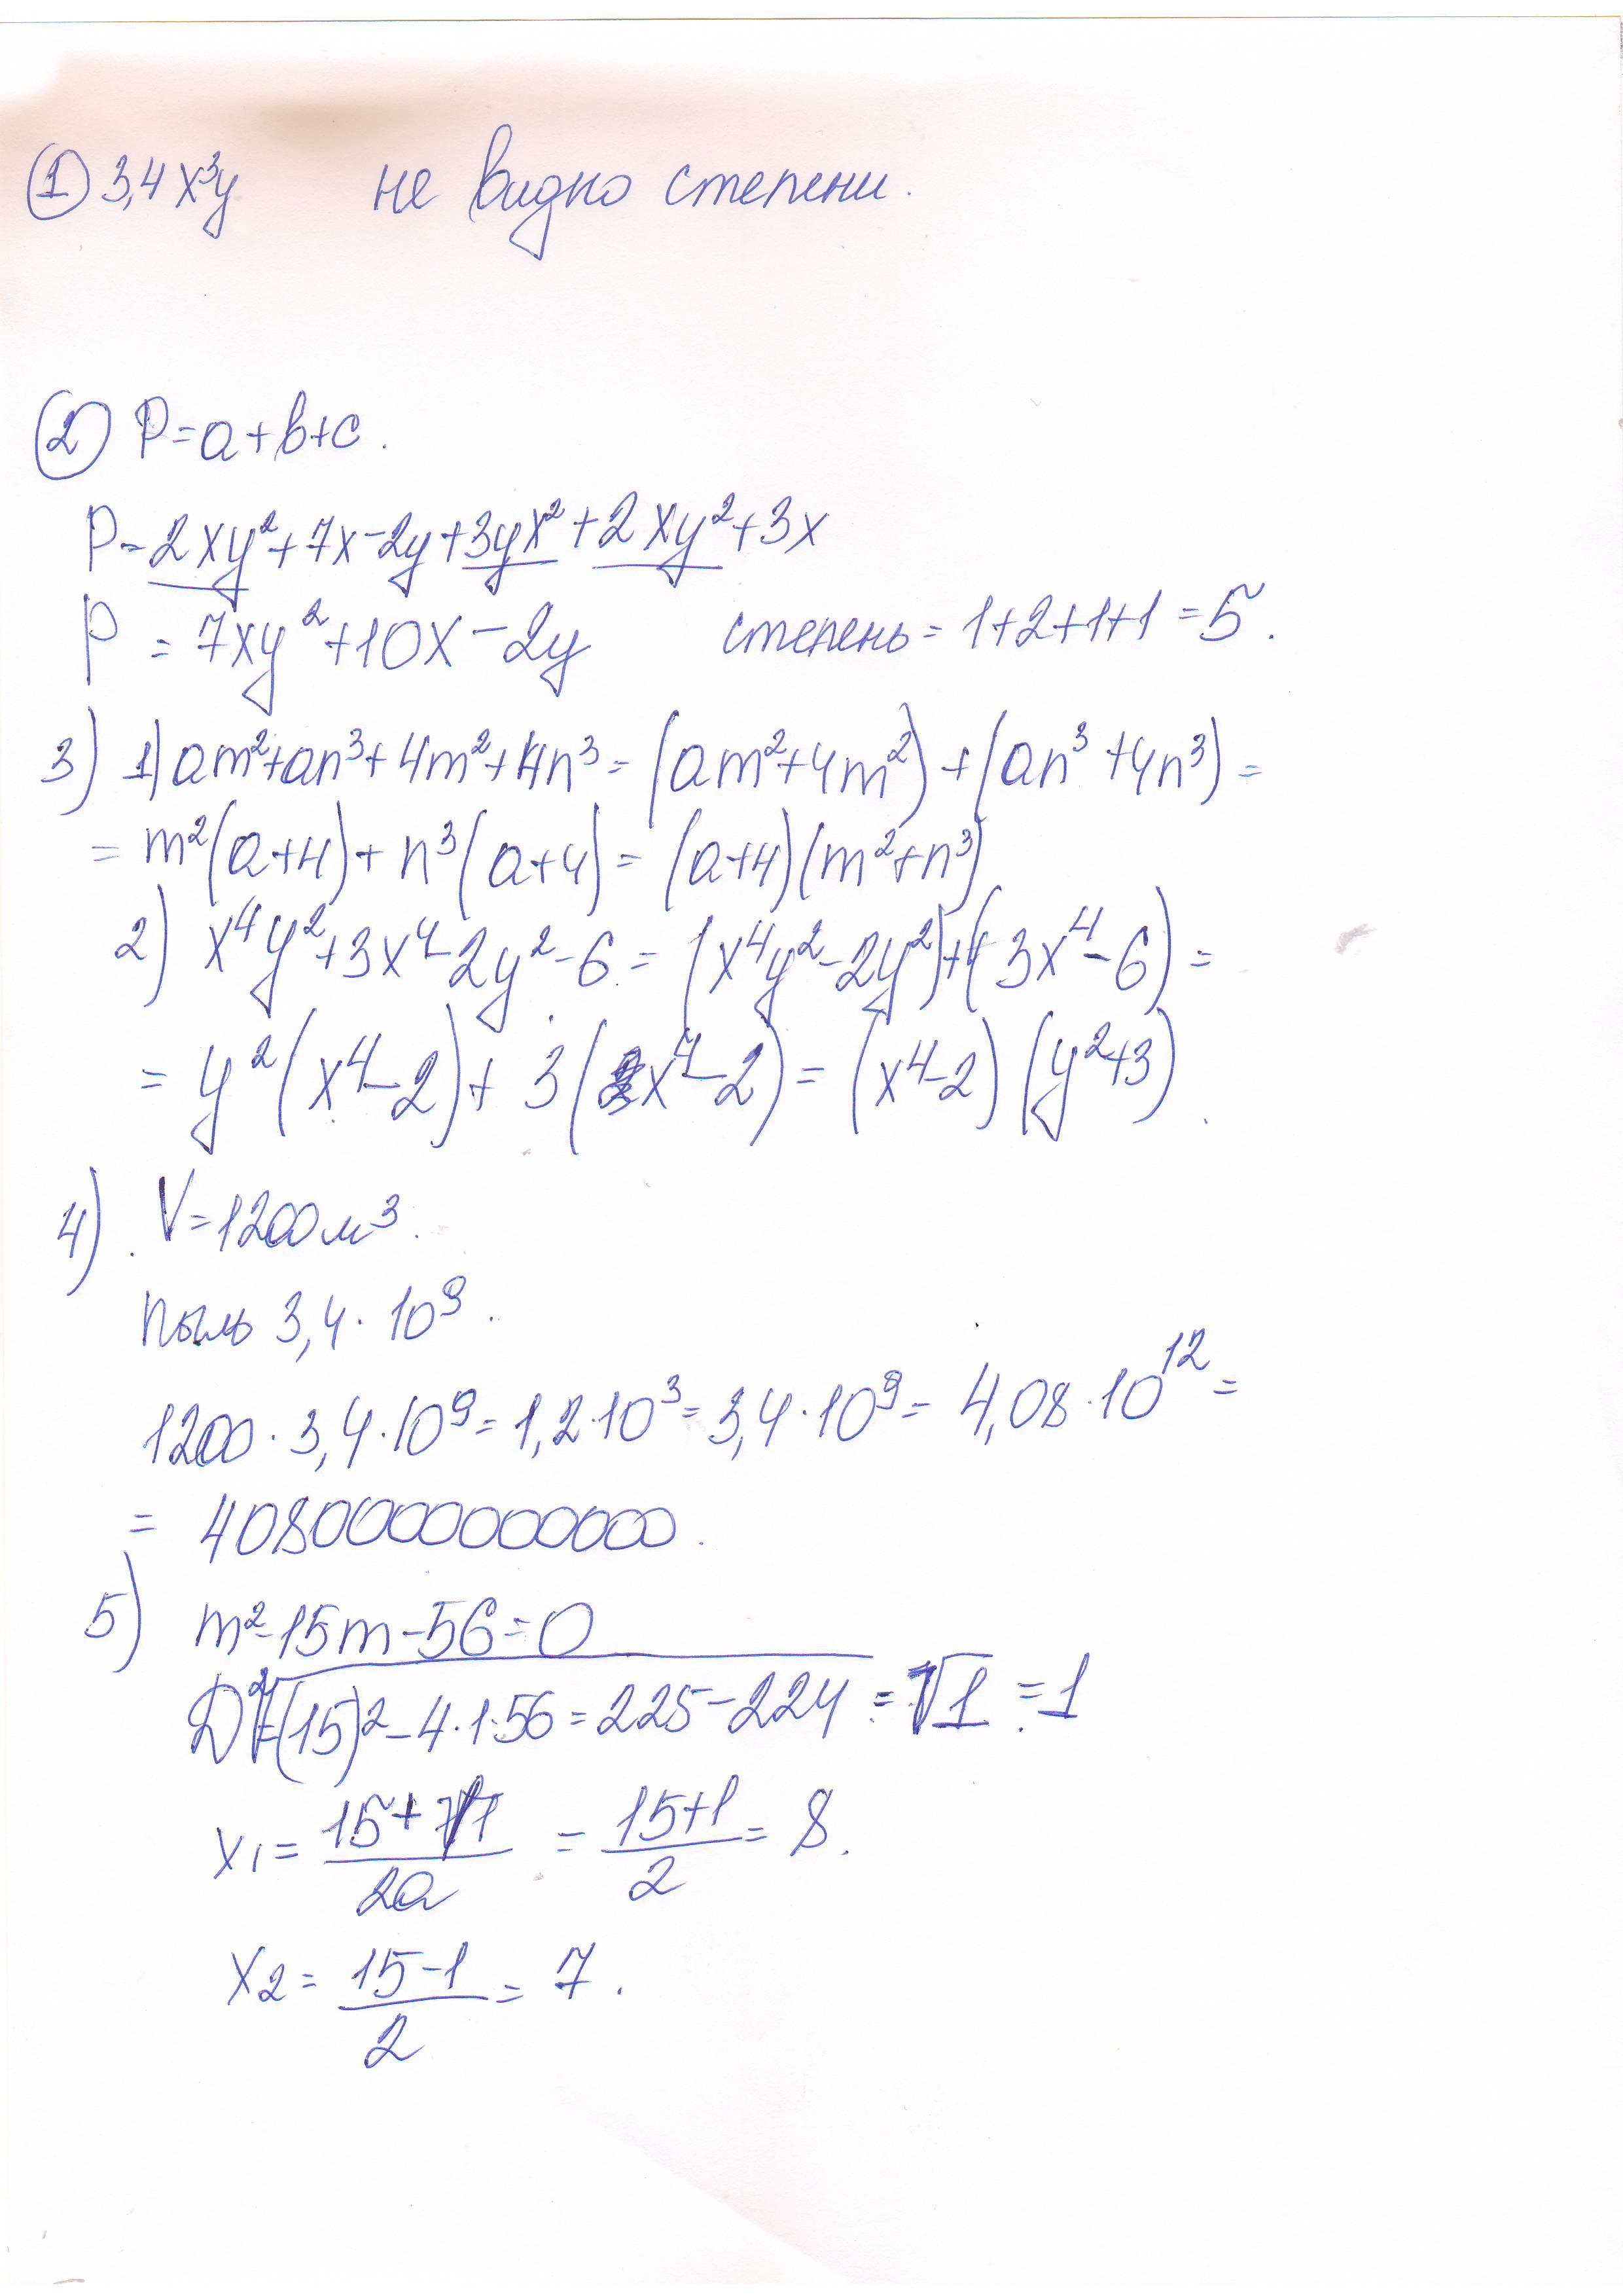 ① 3,4x³y не видно степени.
② P=a+b+c.
P=2xy²+7x-2y+3yx²+2xy²+3x
P = 7xy²+10x-2y степень = 1+2+1+1=5.
3) 1) am²+an³+4m²+4n³=(am²+4m²)+(an³+4n³)=
= m²(a+4)+n³(a+4)=(a+4)(m²+n³)
2) x⁴y²+3x⁴-2y²-6=(x⁴y²-2y²)+(3x⁴-6)=
= y²(x⁴-2)+3(x⁴-2)=(x⁴-2)(y²+3).
4) V=1200м³.
пыль 3,4·10⁹.
1200·3,4·10⁹=1,2·10³=3,4·10⁹=4,08·10¹²=
= 4080000000000.
5) m²-15m-56=0
D=√(15)²-4·1·56=225-224=√1=1
x₁=(15+√1)/2a=(15+1)/2=8.
x₂=(15-1)/2=7.